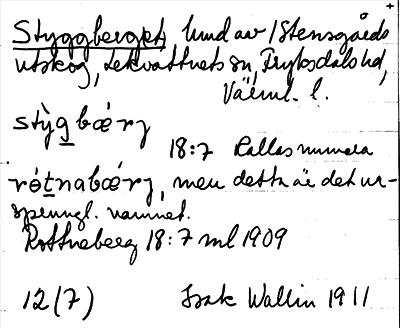 Styggberget, lund av /Stensgårds
utskog, Lekvattnets sn, Fryksdals hd,
Värml. l.
stỳg̲bǽrj
18:7 Kallas numera
rót̲nabǽrj, men detta är det ur-
sprungl. namnet.
Rottneberg 18:7 ml 1909
12(7) Isak Wallin 1911